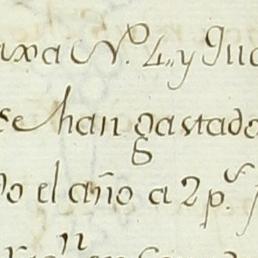 axa Nº. 4,, y Qua
se han gastado
do el año a 2 p.s